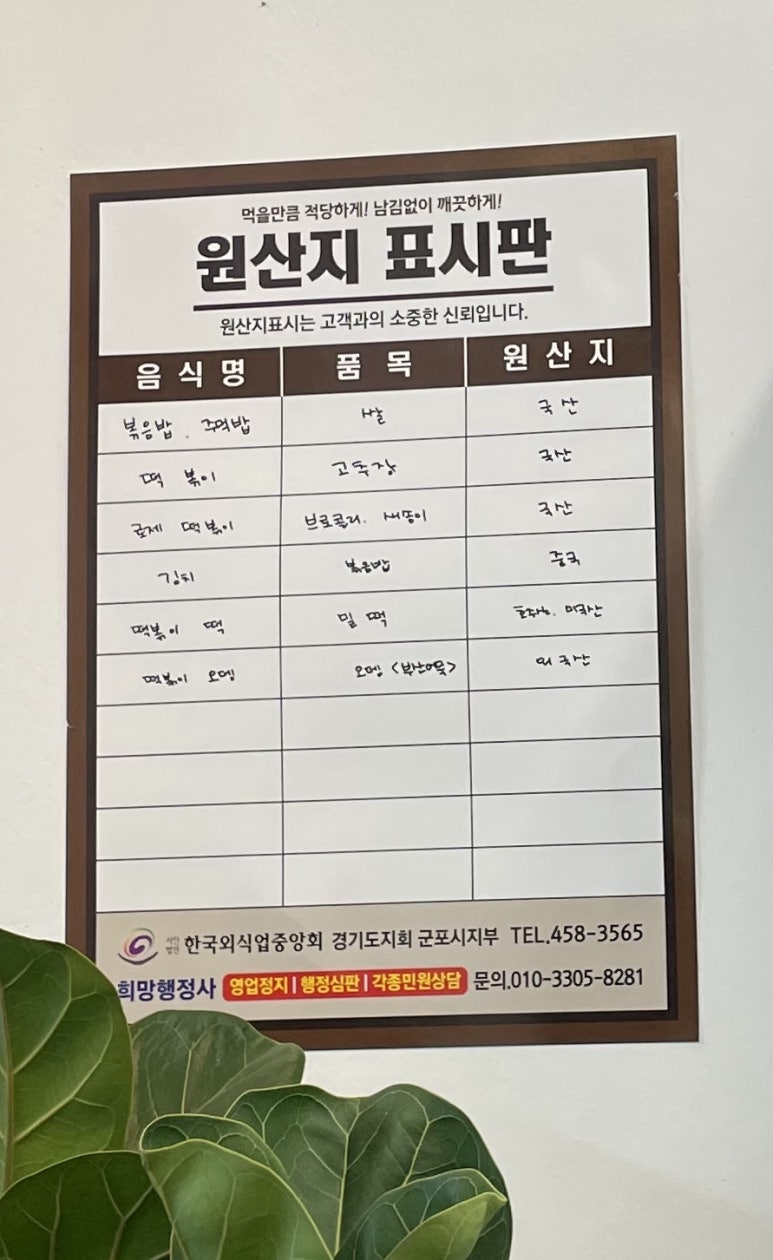 먹을만큼 적당하게! 남김없이 깨끗하게!
원산지 표시판
원산지표시는 고객과의 소중한 신뢰입니다.
음식명 품목 원산지
볶음밥. 주먹밥 쌀 국산
떡 볶이 고추장 국산
로제 떡볶이 브로콜리. 새송이 국산
김치 볶음밥 중국
떡볶이 떡 밀 떡 호주산. 미국산
떡볶이 오뎅 오뎅 <부산어묵> 외국산
사단법인 한국외식업중앙회 경기도지회 군포시지부 TEL.458-3565
희망행정사 영업정지 | 행정심판 | 각종민원상담 문의.010-3305-8281